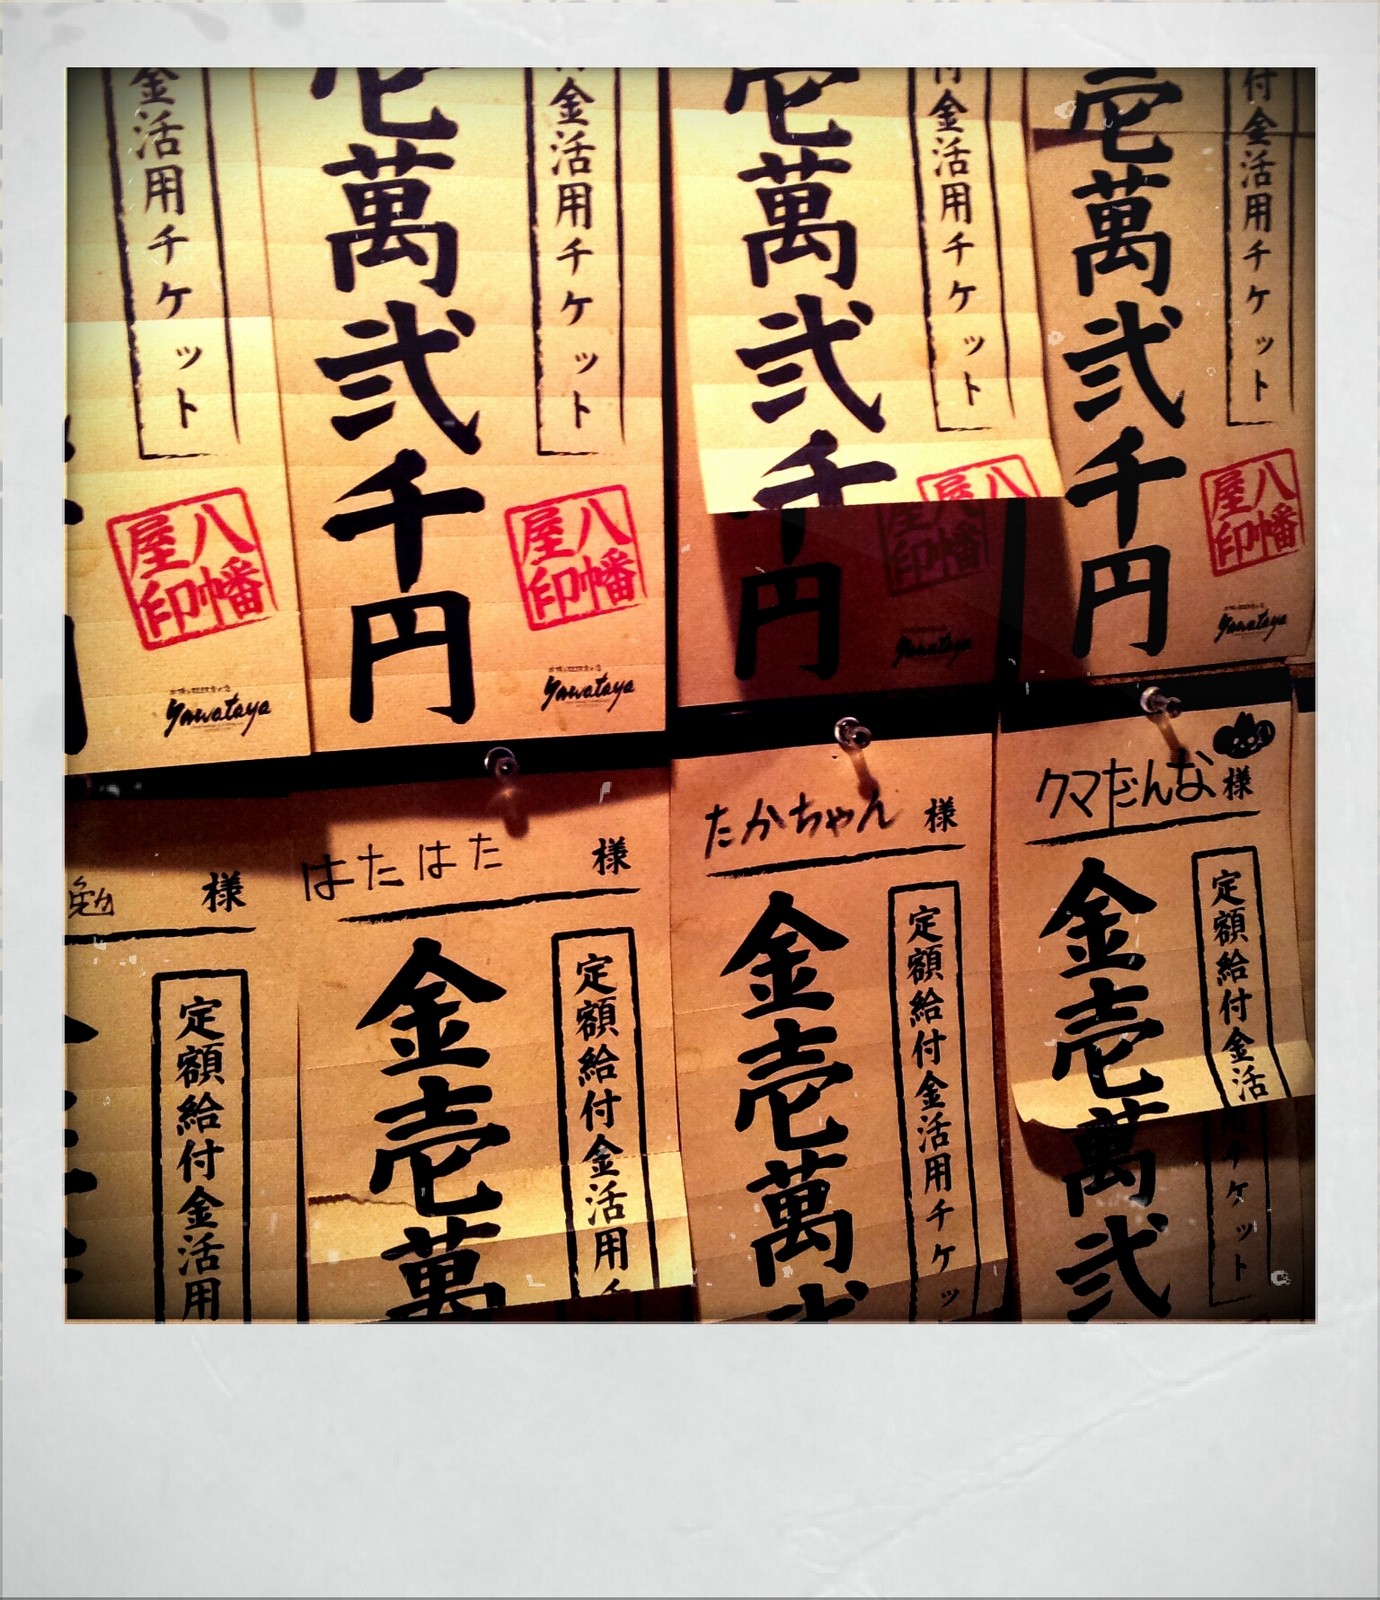 金活用チケット
八幡
屋印
yawataya
付金活用チケット
壱萬弐千円
八幡
屋印
yawataya
付金活用チケット
壱萬弐千円
八幡
屋印
yawataya
付金活用チケット
壱萬弐千円
八幡
屋印
yawataya
勉 様
定額給付金活用
はたはた 様
定額給付金活用チ
金壱萬
たかちゃん 様
定額給付金活用チケッ
金壱萬弐
クマだんな 様
定額給付金活用チケット
金壱萬弐